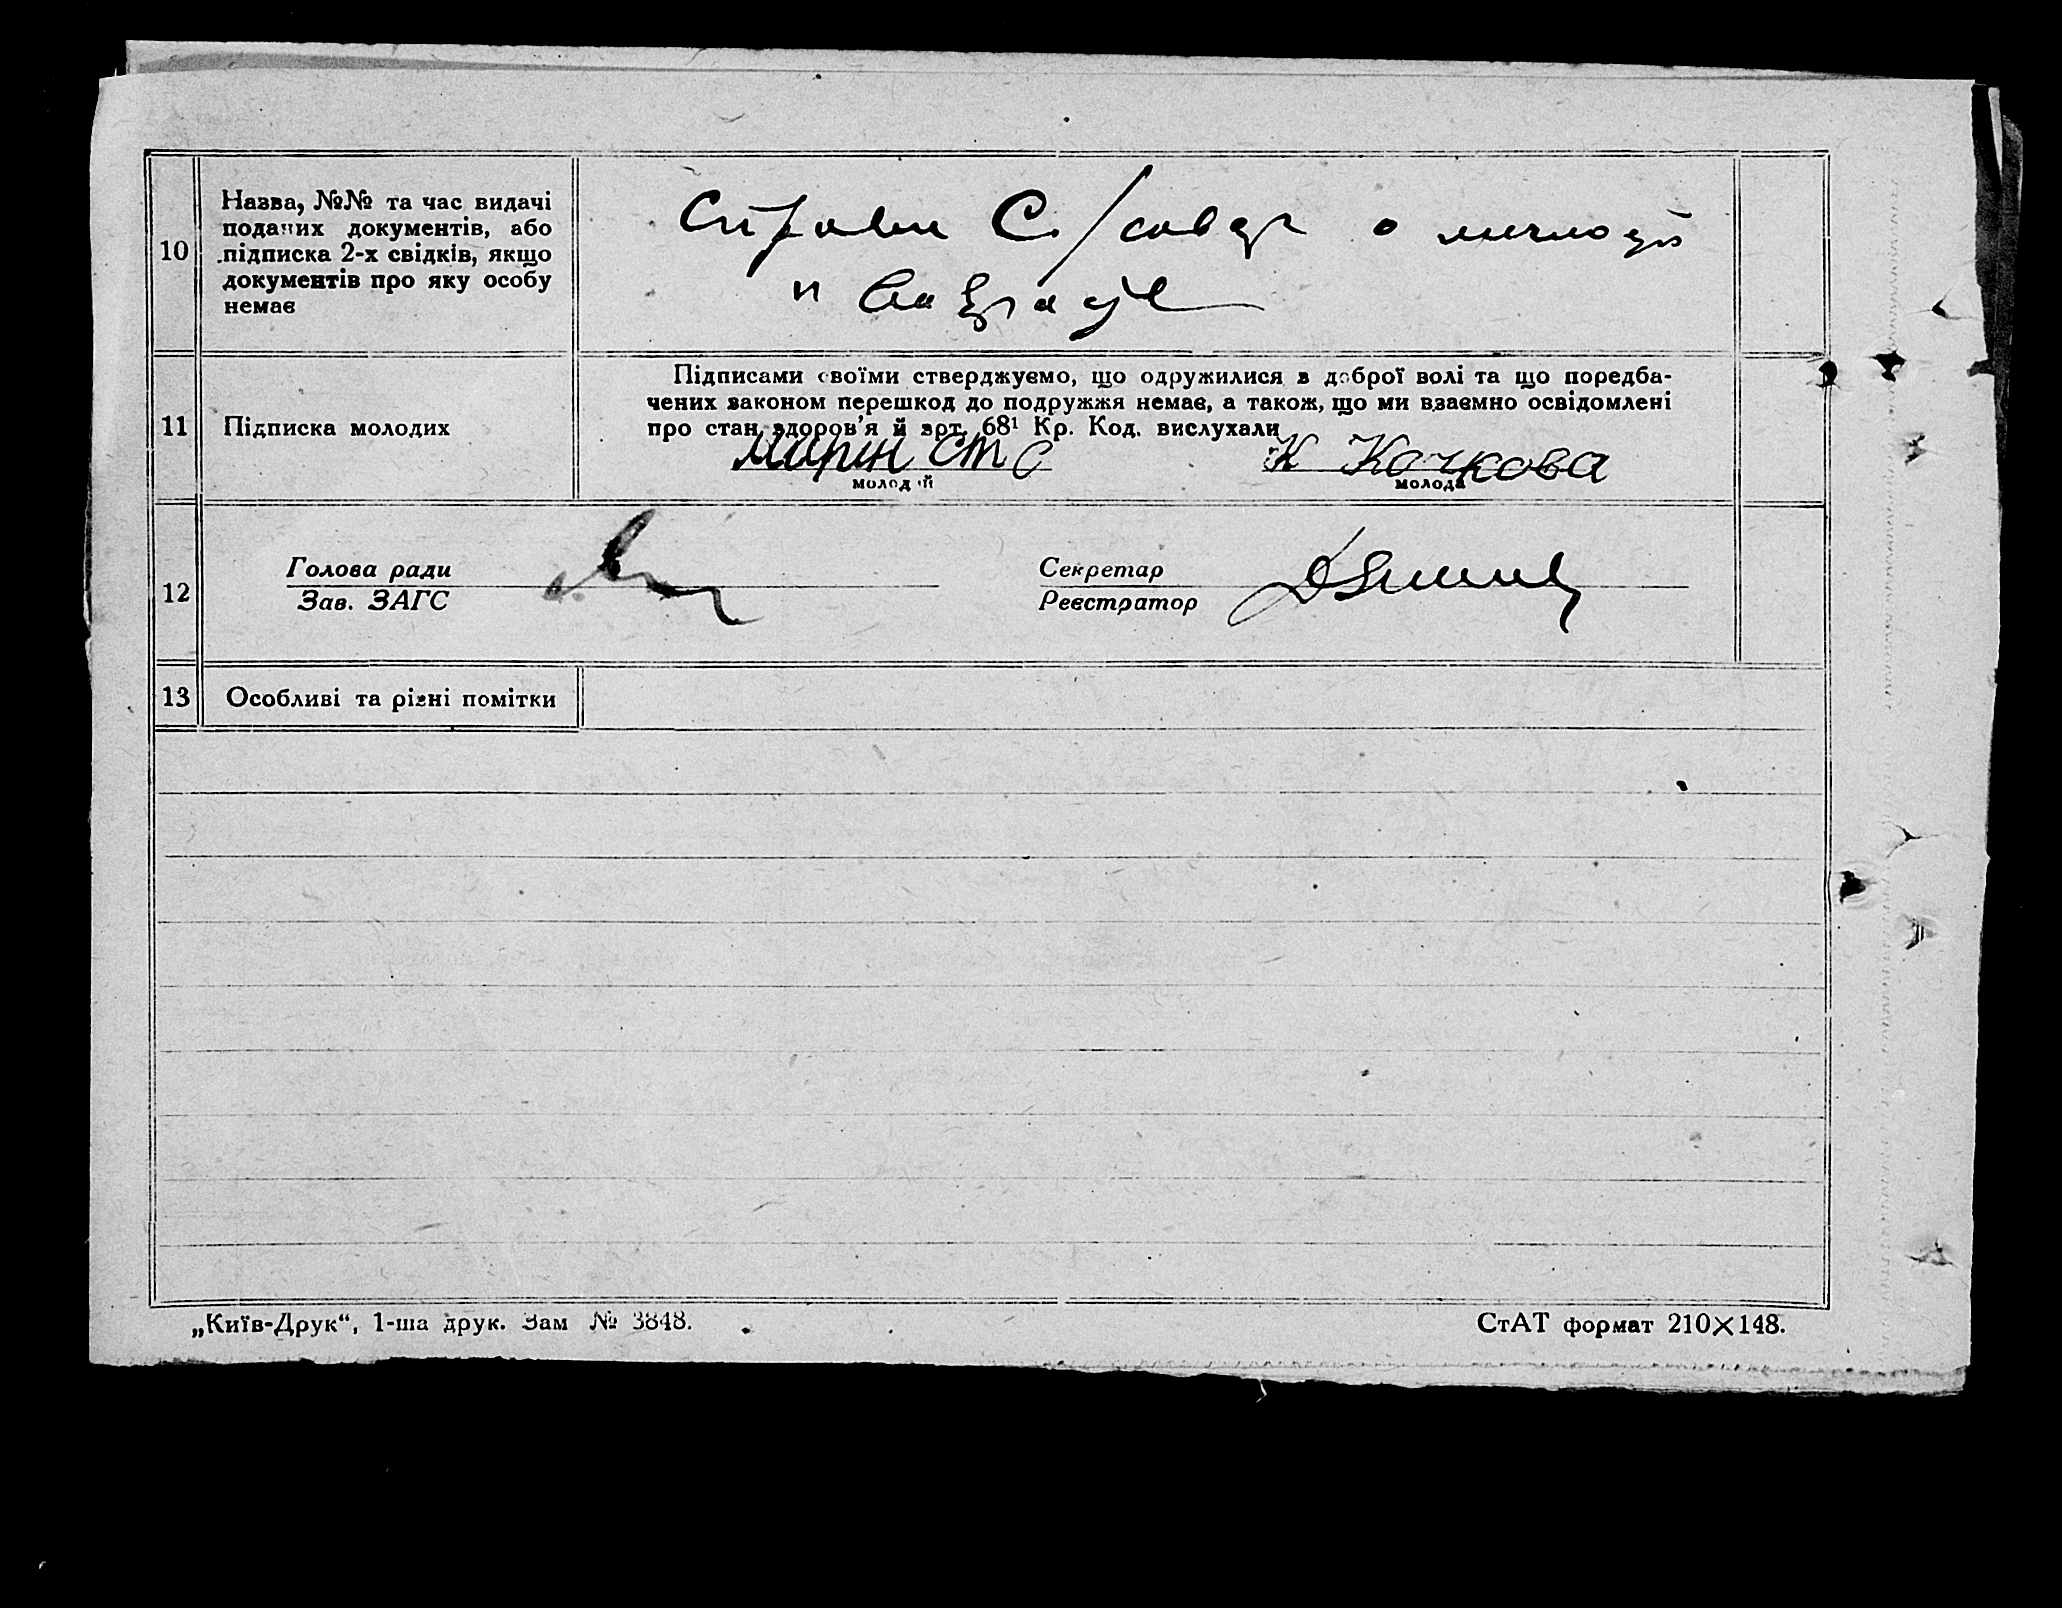 10
Назва, №№ та час видачі
поданих документів, або
підписка 2-х свідків, якщо
документів про яку особу
немає
Справки С/совета о личности
и возрасте
11
Підписка молодих
Підписами своїми стверджуємо, що одружилися з доброї волі та що поредба-
чених законом перешкод до подружжя немає, а також, що ми взаємно освідомлені
про стан здоров'я й арт. 68¹ Кр. Код. вислухали
К Качкова
молодий
молода
12
Голова ради
Зав. ЗАГС
Секретар
Реєстратор
13
Особливі та різні помітки
„Київ-Друк“, 1-ша друк. Зам № 3848.
СтАТ формат 210×148.